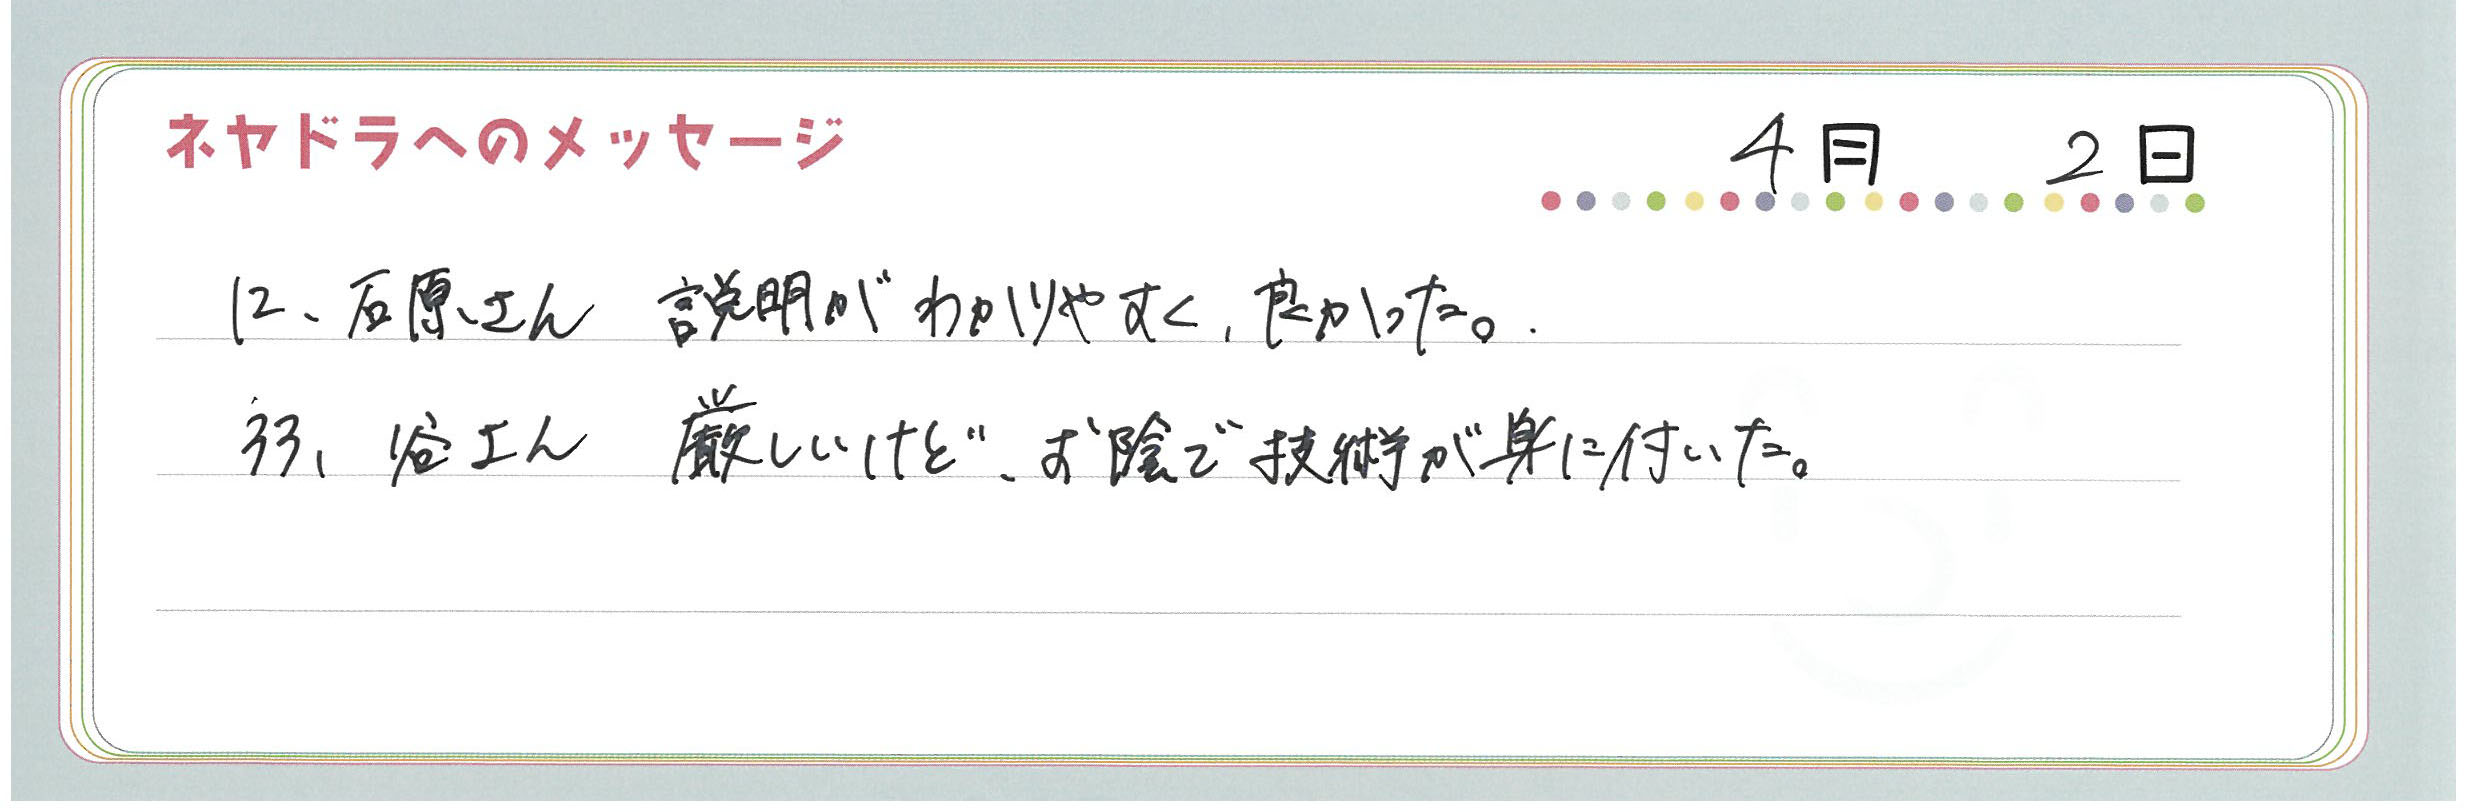 ネヤドラへのメッセージ
4月 2日
12、石原さん 説明がわかりやすく、良かった。
33、谷さん 厳しいけど、お陰で技術が身に付いた。